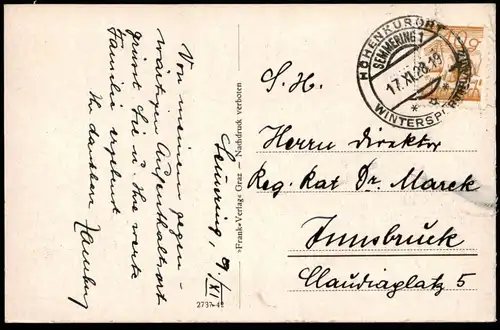 Semmering, 9./XI
Von meinem gegen-
wärtigen Aufenthaltsort
grüsst Sie u. Ihre werte
Familie ergebenst
Ihr dankbarer
»Frank«-Verlag« Graz — Nachdruck verboten
2737-42
HÖHENKURORT
SEMMERING 1
17.XI.28.19
* 8 *
S. H.
Herrn Direktor
Reg. Rat Dr. Marek
Innsbruck
Claudiaplatz 5